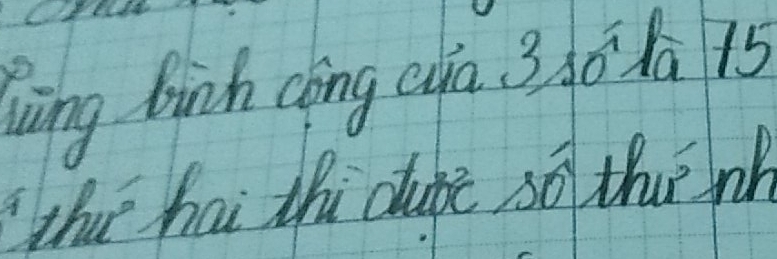 Trung bình cộng của 3 số là 75
thứ hai thì được số thứ nh